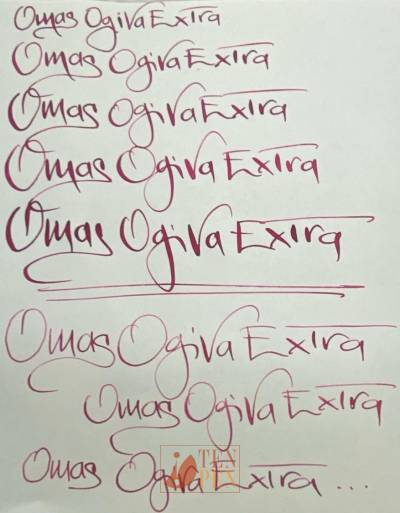 Omas Ogiva Extra
Omas Ogiva Extra
Omas Ogiva Extra
Omas Ogiva Extra
Omas Ogiva Extra
Omas Ogiva Extra
Omas Ogiva Extra
Omas Ogiva Extra ...
TEN
PEN